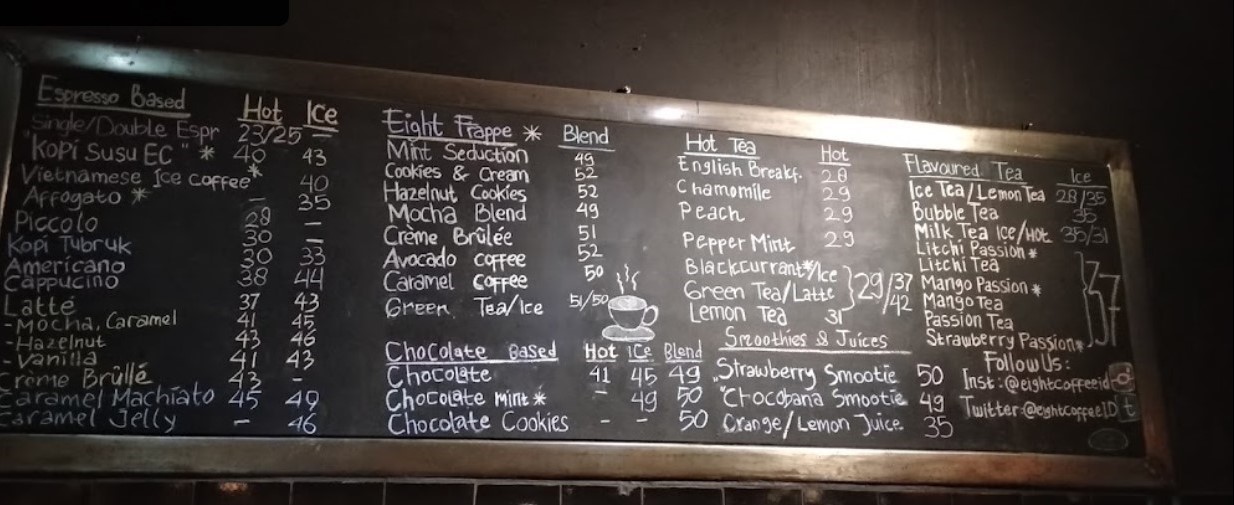 Espresso Based Hot Ice
Single/Double Espr 23/25 —
"Kopi Susu EC" * 40 43
Vietnamese Ice Coffee* 40
Affogato * — 35
Piccolo 28 —
Kopi Tubruk 30 —
Americano 30 33
Cappucino 38 44
Latte 37 43
-Mocha, Caramel 41 45
-Hazelnut 43 46
-Vanilla 41 43
Creme Brûllé 43 -
Caramel Machiato 45 49
Caramel Jelly - 46
Eight Frappe * Blend
Mint Seduction 49
Cookies & Cream 52
Hazelnut Cookies 52
Mocha Blend 49
Crème Brûlée 51
Avocado coffee 52
Caramel Coffee 50
Green Tea/Ice 51/50
Chocolate Based Hot ICe Blend
Chocolate 41 45 49
Chocolate Mint * — 49 50
Chocolate Cookies - - 50
Hot Tea Hot
English Breakf. 28
Chamomile 29
Peach 29
Pepper Mint 29
Blackcurrant*/Ice
Green Tea/Latte } 29/37/42
Lemon Tea 31
Smoothies & Juices
Strawberry Smootie 50
"Chocobana Smootie 49
Orange/Lemon Juice. 35
Flavoured Tea Ice
Ice Tea/Lemon Tea 28/35
Bubble Tea 35
Milk Tea Ice/Hot 35/31
Litchi Passion *
Litchi Tea
Mango Passion * } 37
Mango Tea
Passion Tea
Strawberry Passion*
Follow Us:
Inst: @eightcoffeeid
Twitter:@eightcoffeeID t